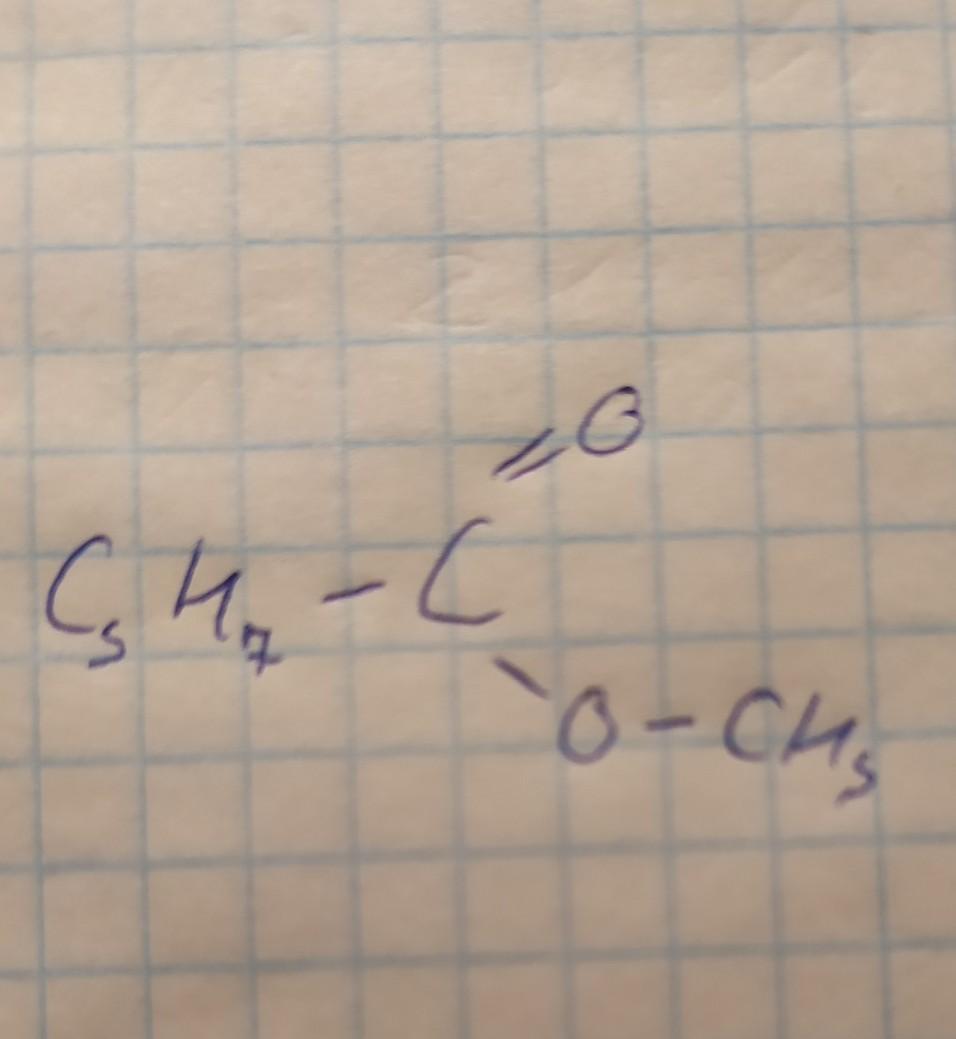 =O
C₃H₇-C
\O-CH₃